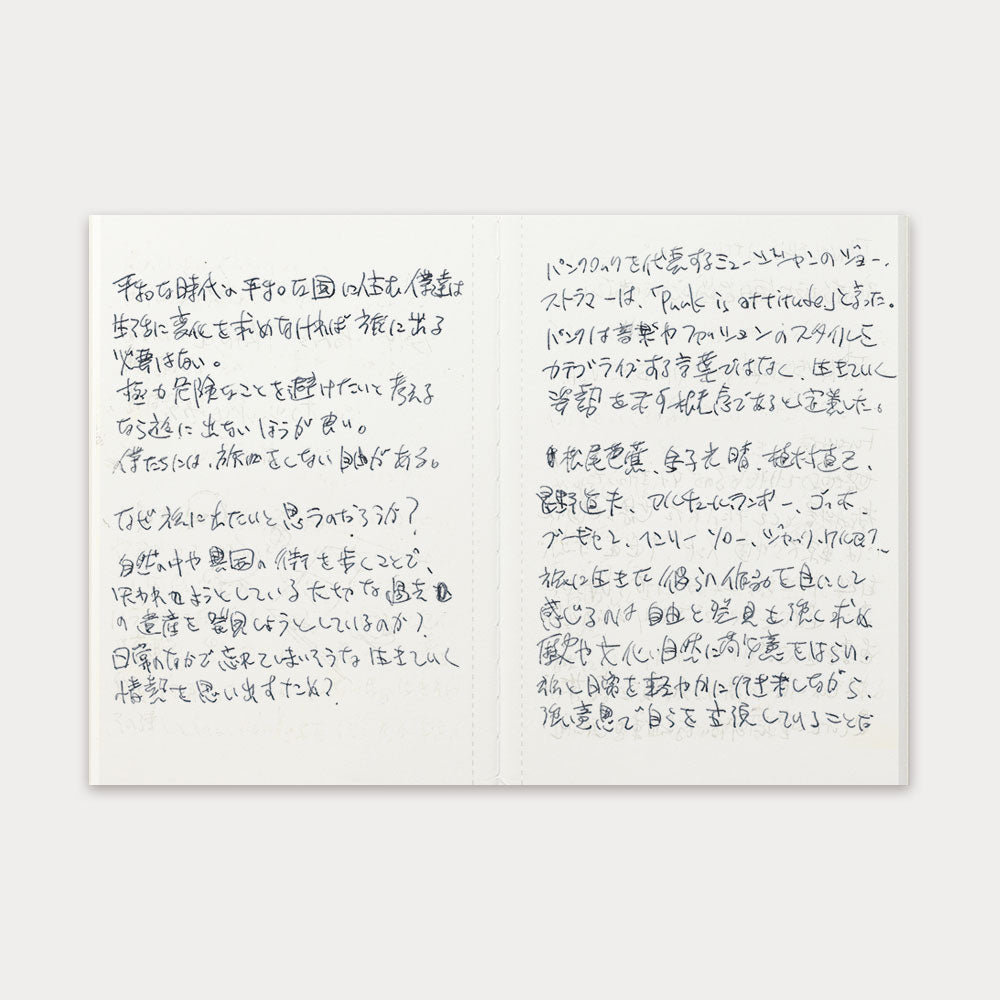 平和な時代の平和な国に住む僕達は
生活に変化を求めなければ旅に出る
必要はない。
極力危険なことを避けたいと考える
なら旅に出ないほうが良い。
僕たちには、旅をしない自由がある。
なぜ旅に出たいと思うのだろうか?
自然の中や異国の街を歩くことで、
失われようとしている大切な過去
の遺産を発見しようとしているのか?
日常のなかで忘れてしまいそうな生きていく
情熱を思い出すため?
パンクロックを代表するミュージシャンのジョー・
ストラマーは、「Punk is attitude」と言った。
パンクは音楽やファッションのスタイルを
カテゴライズする言葉ではなく、生きていく
姿勢を示す概念であると定義した。
松尾芭蕉、金子光晴、植村直己、
星野道夫、アルチュール・ランボー、ゴッホ、
ゴーギャン、ヘンリー・ソロー、ジャック・ケルアック
旅に生きた彼らの作品を目にして
感じるのは自由と発見を強く求め
歴史や文化、自然に敬意をはらい、
旅と日常を軽やかに行き来しながら、
強い意思で自らを表現していることだ